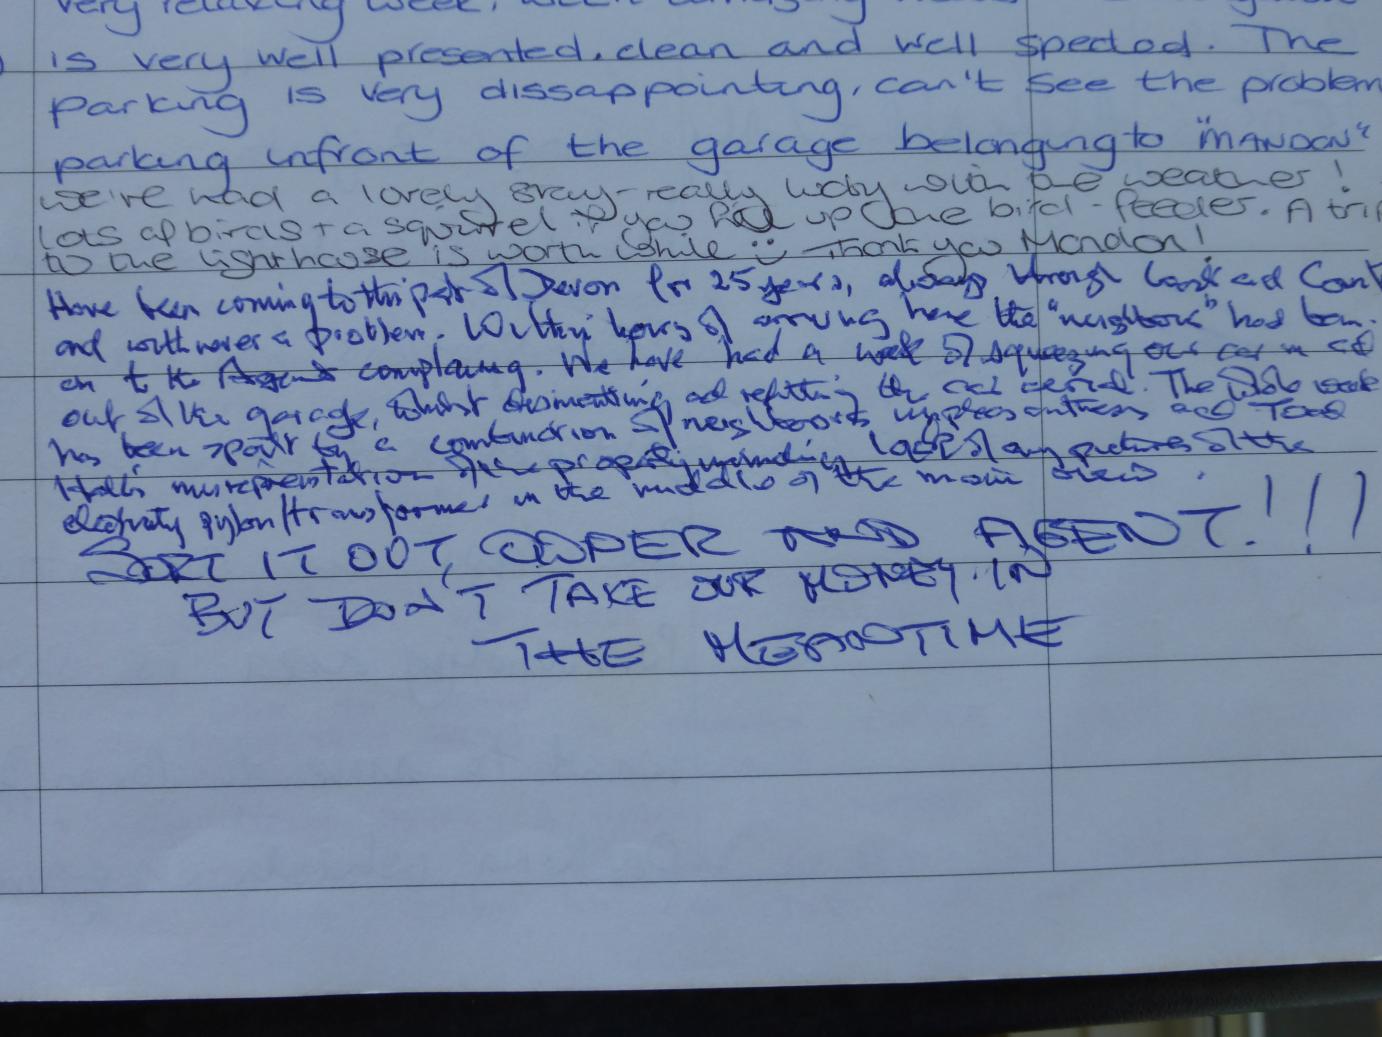 very relaxing week,
is very well presented, clean and well spected. The
parking is very dissappointing, can't see the problem
parking infront of the garage belonging to "MANDON"
we've had a lovely stay - really lucky with the weather!
lots of birds + a squirrel if you fill up the bird-feeder. A trip
to the lighthouse is worth while :) Thank you Mandon!
Have been coming to this part of Devon for 25 years, always through Coast and Count
and with never a problem. Within hours of arriving here the "neighbours" had been
on to the Agents complaining. We have had a week of squeezing our car in and
out of the garage, whilst dismantling and refitting the car aerial. The whole week
has been spoilt by a combination of neighbours unpleasantness and Toad
Hall's misrepresentation of the property including lack of any pictures of the
electricity pylon/transformer in the middle of the main view.
SORT IT OUT, OWNER AND AGENT!!!
BUT DON'T TAKE OUR MONEY IN
THE MEANTIME